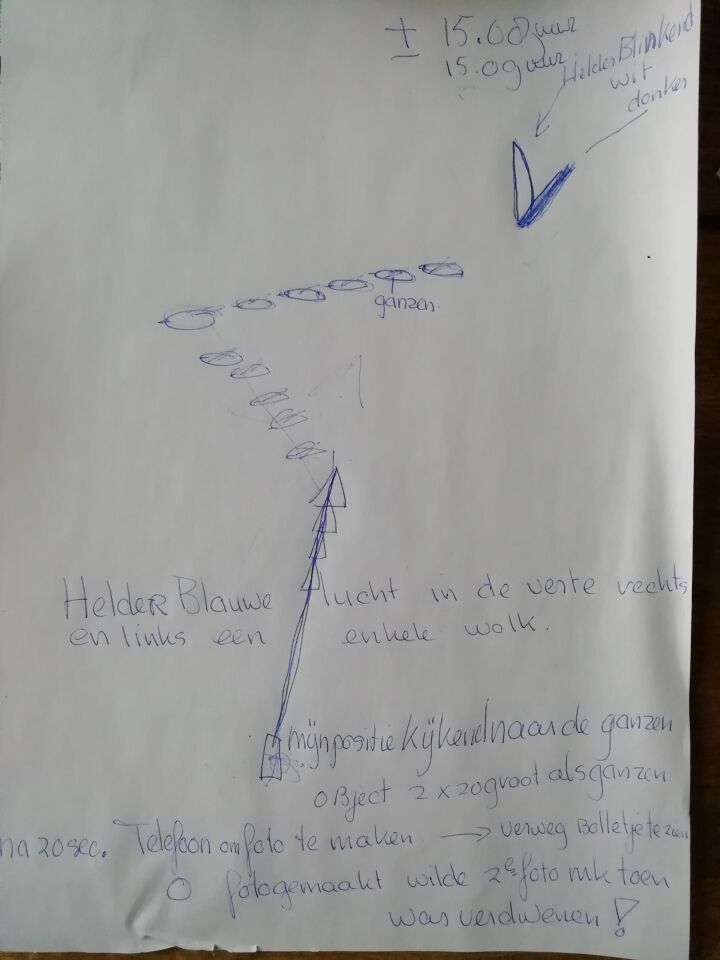 ± 15.08 uur
15.09 uur
Helder Blinkend
wit
donker
ganzen
Helder Blauwe lucht in de verte rechts
en links een enkele wolk.
mijn positie kijkend naar de ganzen
object 2 x zo groot als ganzen
na 20 sec. Telefoon om foto te maken → verweg Bolletje te zien
O foto gemaakt wilde 2e foto mk toen
was verdwenen!